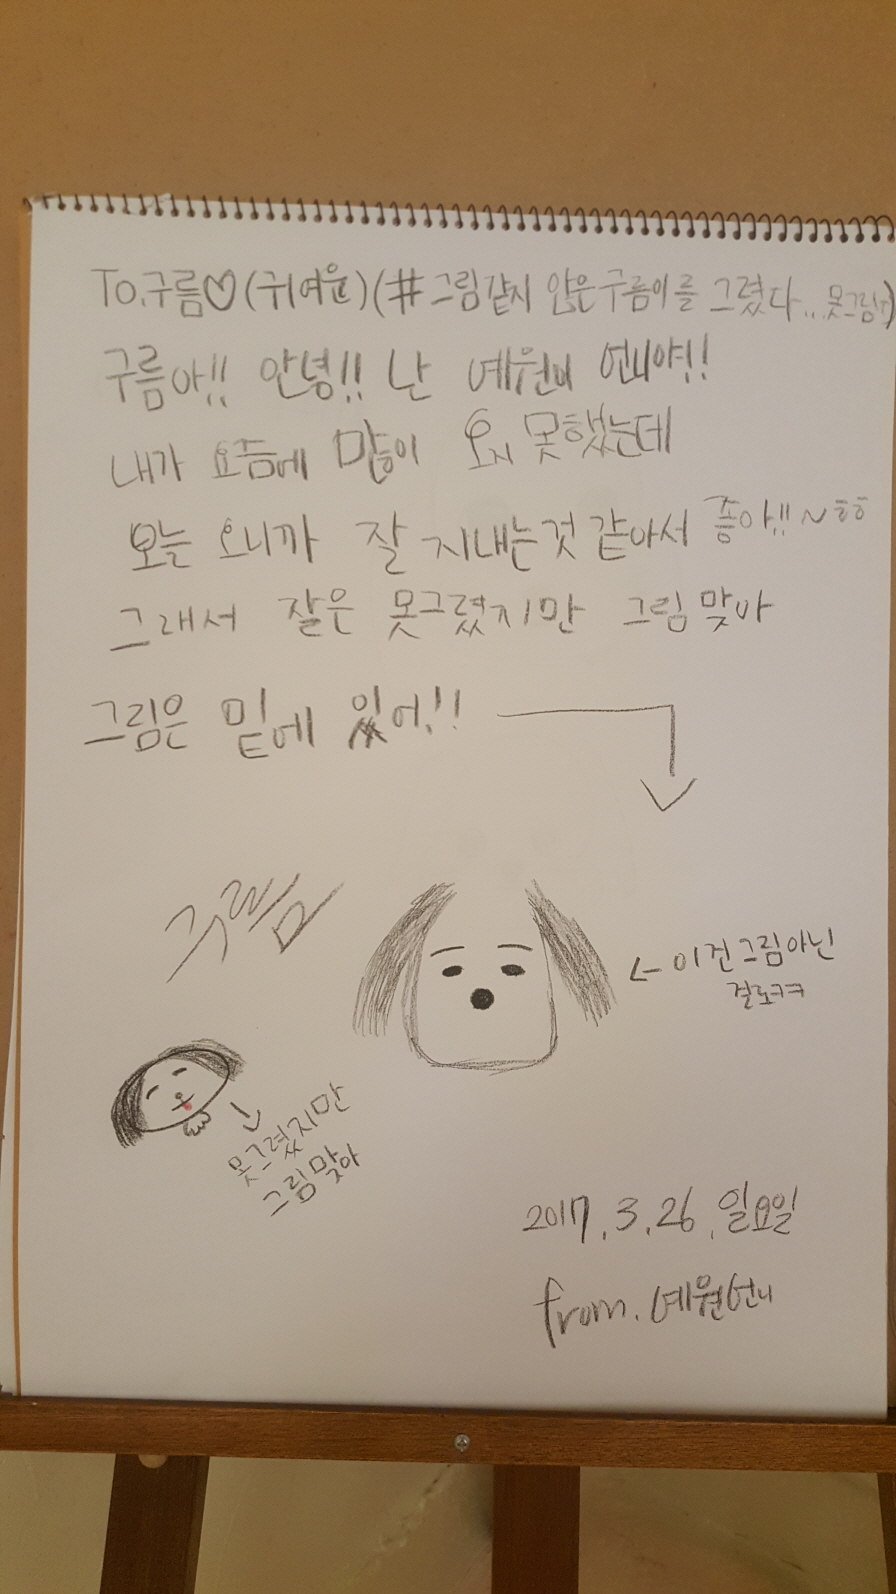 To.구름♡(귀여운)(#그림같지 안은구름이를 그렸다...못그림)
구름아!! 안녕!! 난 예원이 언니야!!
내가 요즘에 많이 오지 못했는데
오늘 오니까 잘 지내는것 같아서 좋아!!~ㅎㅎ
그래서 잘은 못그렸지만 그림맞아
그림은 밑에 있어!!
구름
←이건그림아닌
걸로ㅋㅋ
못그렸지만
그림맞아
2017.3.26.일요일
from.예원언니